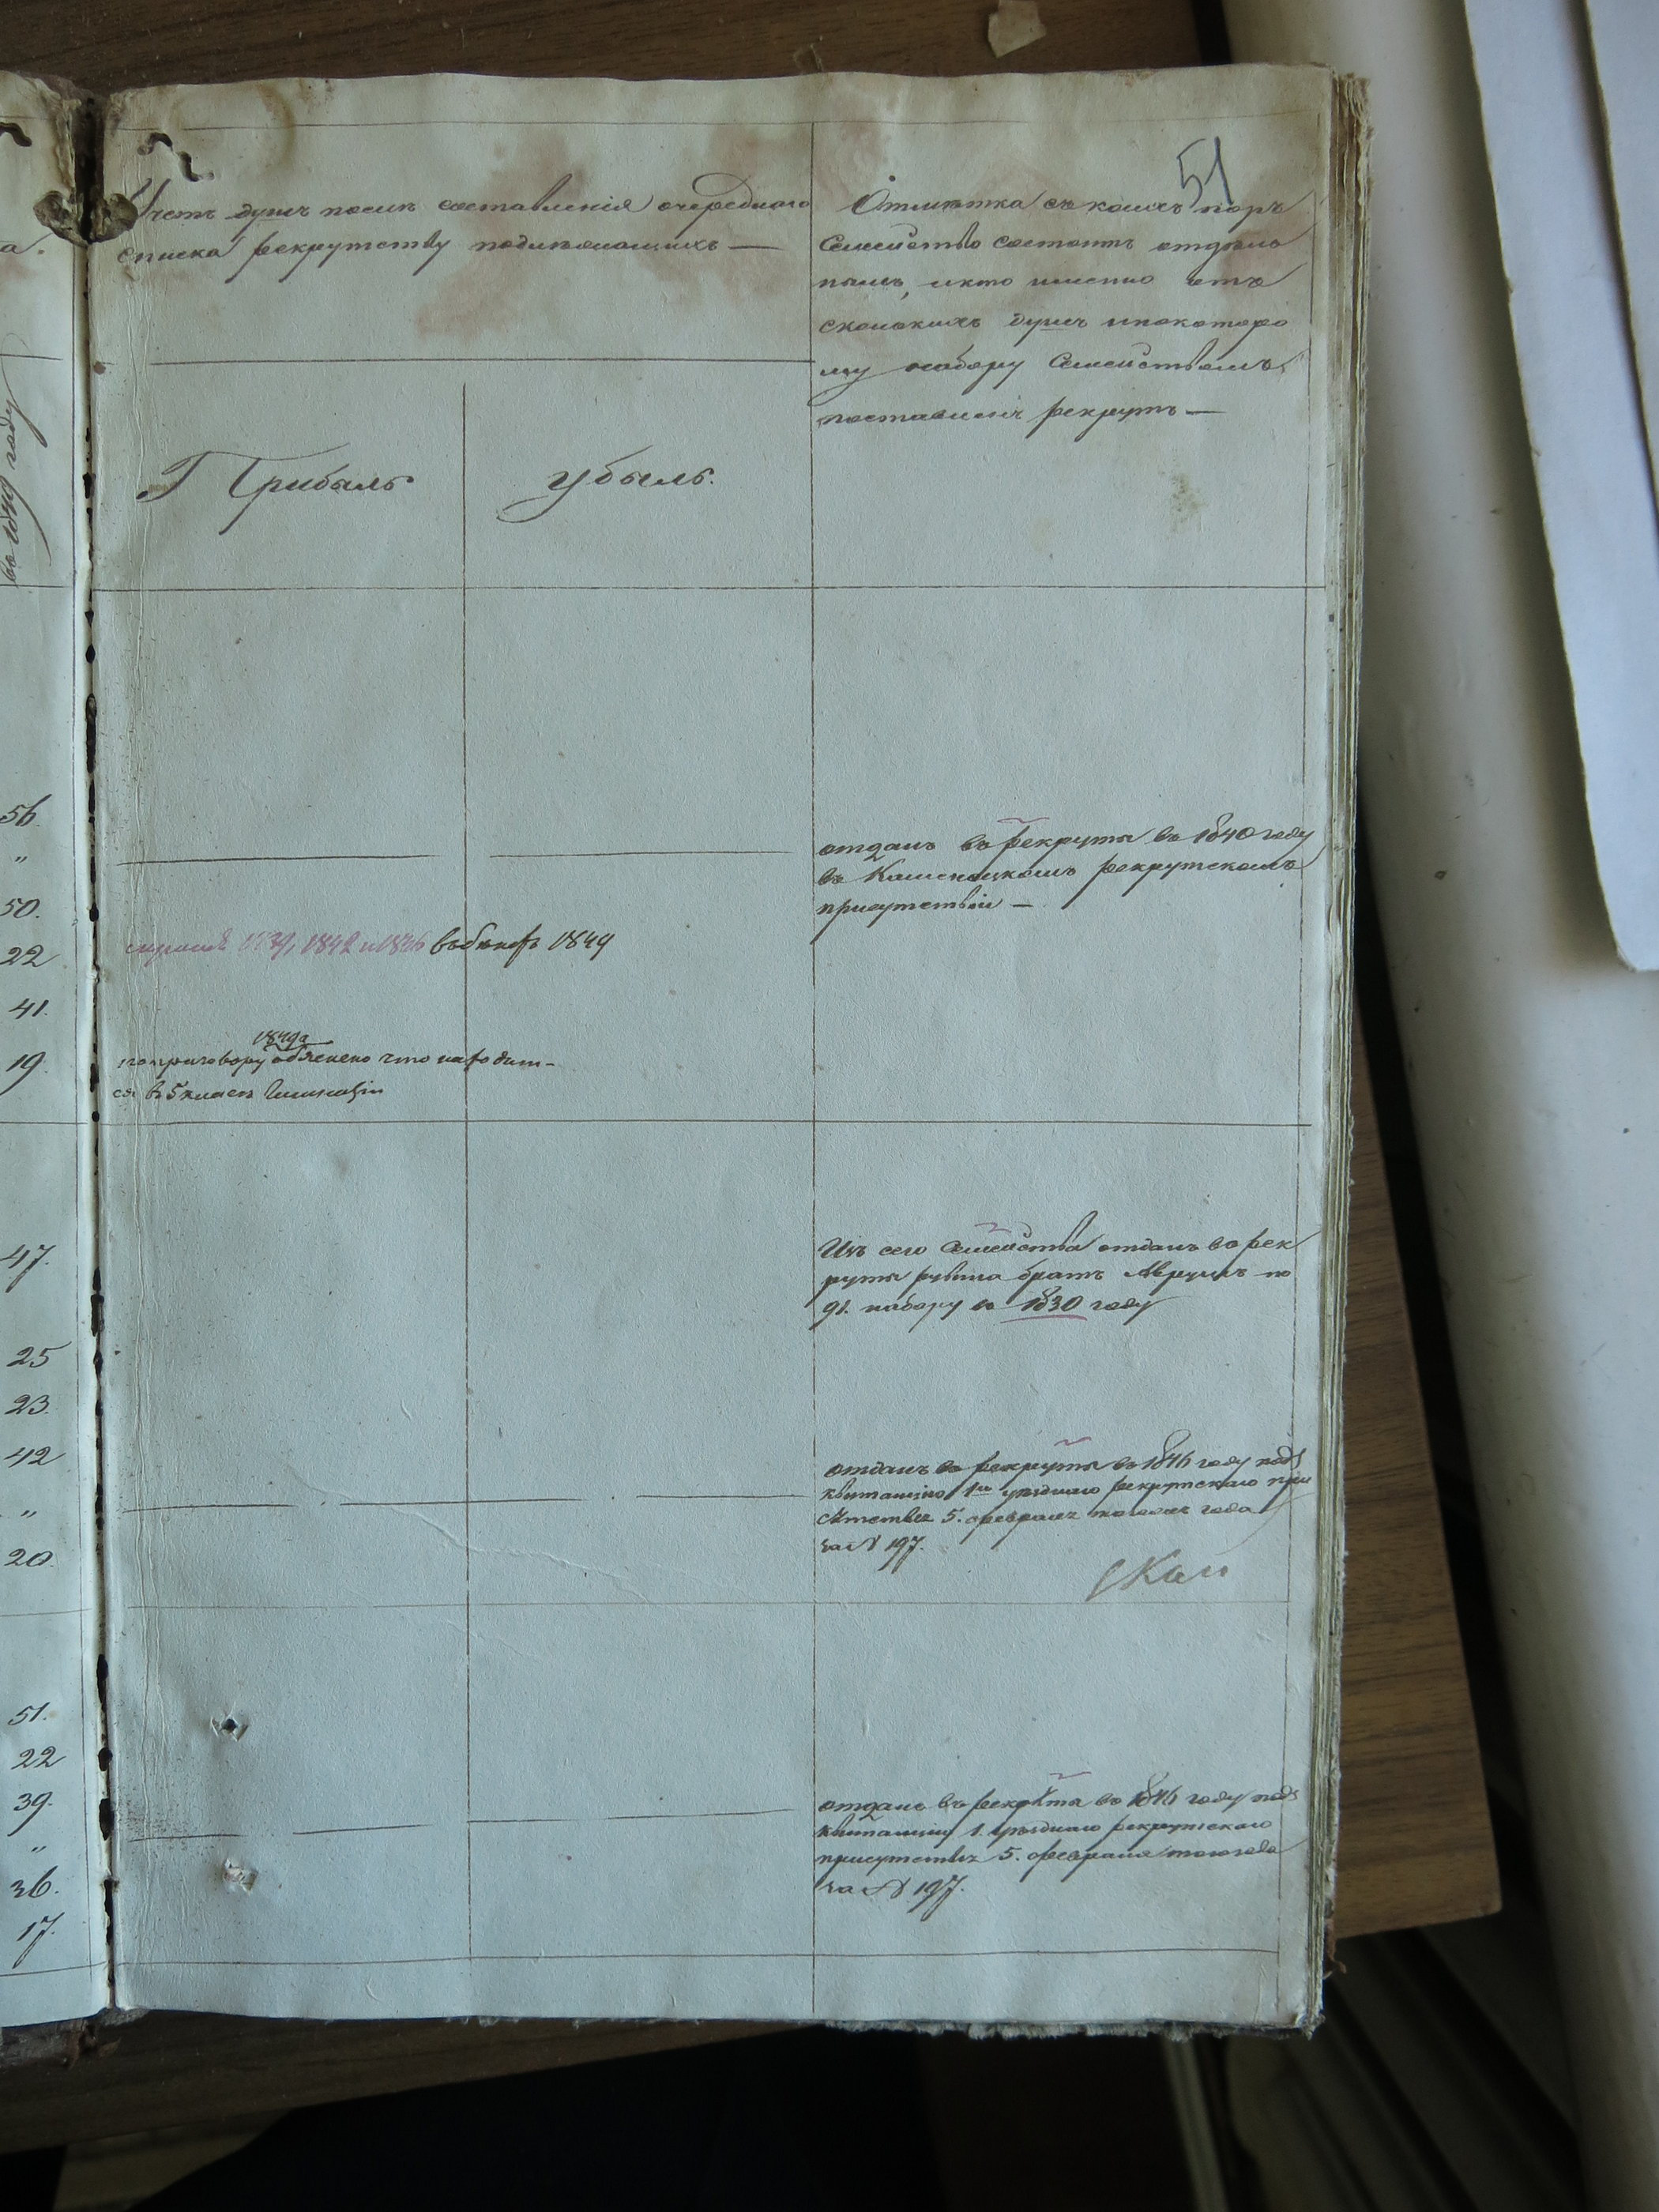 51
Учетъ душъ послѣ составленія очереднаго
списка рекрутству подлѣжащихъ —
Отмѣтка съ коихъ поръ
Семейство состоитъ отдѣль
нымъ, и кто именно изъ
сколькихъ душъ и по которо
му набору Семействомъ
поставленъ рекрутъ —
Прибыль
убыль.
въ 1849 году
а.
56.
"
50.
22
41.
19.
отданъ въ рекруты въ 1840 году
въ Каменецкомъ рекрутскомъ
присутствіи —
1839, 1842 и 1846 въ бѣгахъ 1849
1849 г
по приговору объяснено что находит-
ся в 5 класѣ Гимназіи
47.
25
23.
42
"
20.
Изъ сего Семейства отданъ во рек
руты рувина братъ Аврумъ по
91. набору въ 1830 году
отданъ въ рекруты въ 1846 году подъ
квитанцію 1го уѣзднаго рекрутскаго при
сутствія 5. февраля тогожъ года
за № 197.
51.
22
39.
"
36.
17.
отданъ въ рекруты въ 1846 году подъ
квитанцію 1. уѣзднаго рекрутскаго
присутствія 5. февраля того года
за № 197.